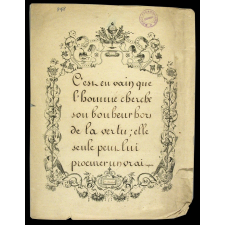 C'est en vain que
l'homme cherche
son bonheur hors
de la vertu; elle
seule peut lui
procurer un vrai